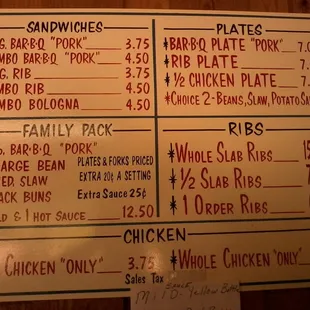 SANDWICHES
G. BAR-B-Q "PORK" 3.75
MBO BAR-B-Q "PORK" 4.50
G. RIB 3.75
MBO RIB 4.50
MBO BOLOGNA 4.50
PLATES
*BAR-B-Q PLATE "PORK" 7.
*RIB PLATE 7.
*½ CHICKEN PLATE 7.
*CHOICE 2-BEANS, SLAW, POTATO SA
FAMILY PACK
BAR-B-Q "PORK"
ARGE BEAN
ED. SLAW
ACK BUNS
PLATES & FORKS PRICED
EXTRA 20¢ A SETTING
EXTRA SAUCE 25¢
D & 1 HOT SAUCE 12.50
RIBS
*WHOLE SLAB RIBS 15
*½ SLAB RIBS 7
*1 ORDER RIBS
CHICKEN
CHICKEN "ONLY" 3.75
Sales Tax
*WHOLE CHICKEN "ONLY"